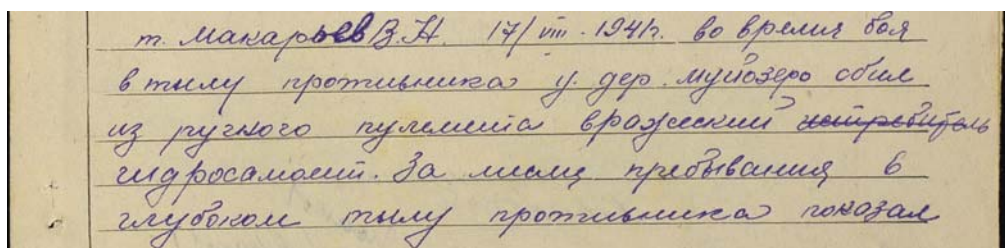 т. Макарьев В.Н. 17/VIII - 1941г. во время боя
в тылу противника у. дер. Муйозеро сбил
из ручного пулемета вражеский истребитель
гидросамолет. За месяц пребывания в
глубоком тылу противника показал